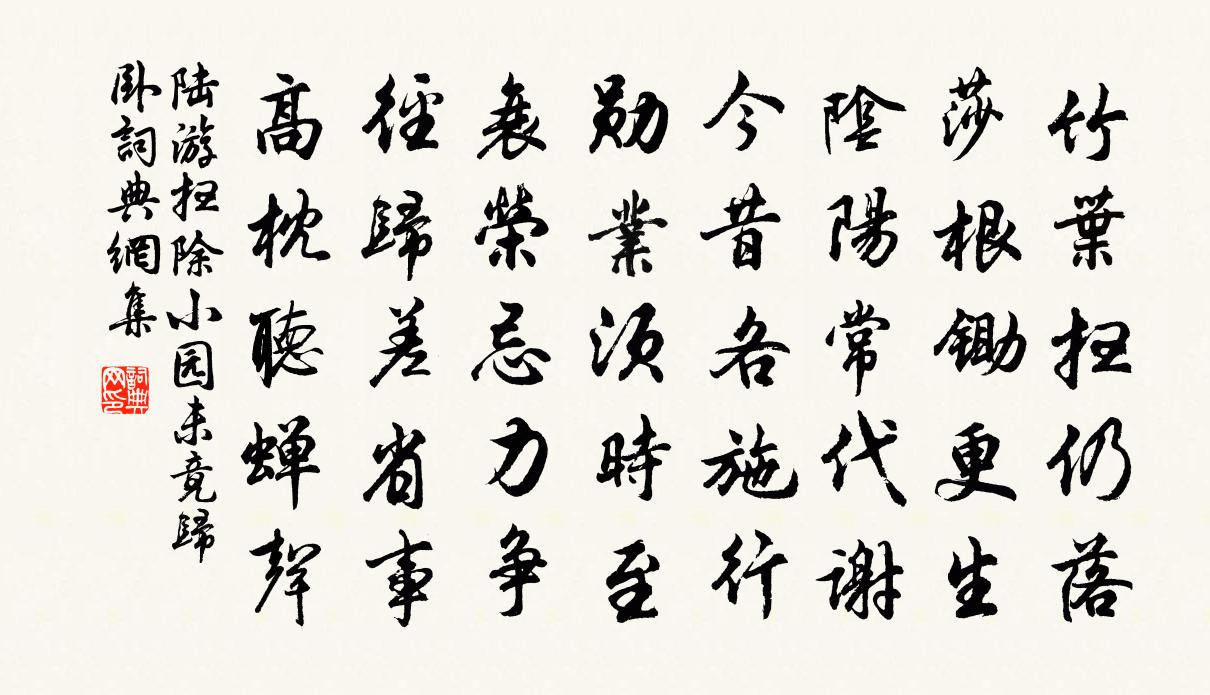 竹葉扫仍落
莎根鋤更生
陰陽常代謝
今昔各施行
勋業須時至
衰榮忌力争
徑歸差省事
高枕聽蝉聲
陆游扫除小园未竟歸
卧詞典網集
詞典
网印